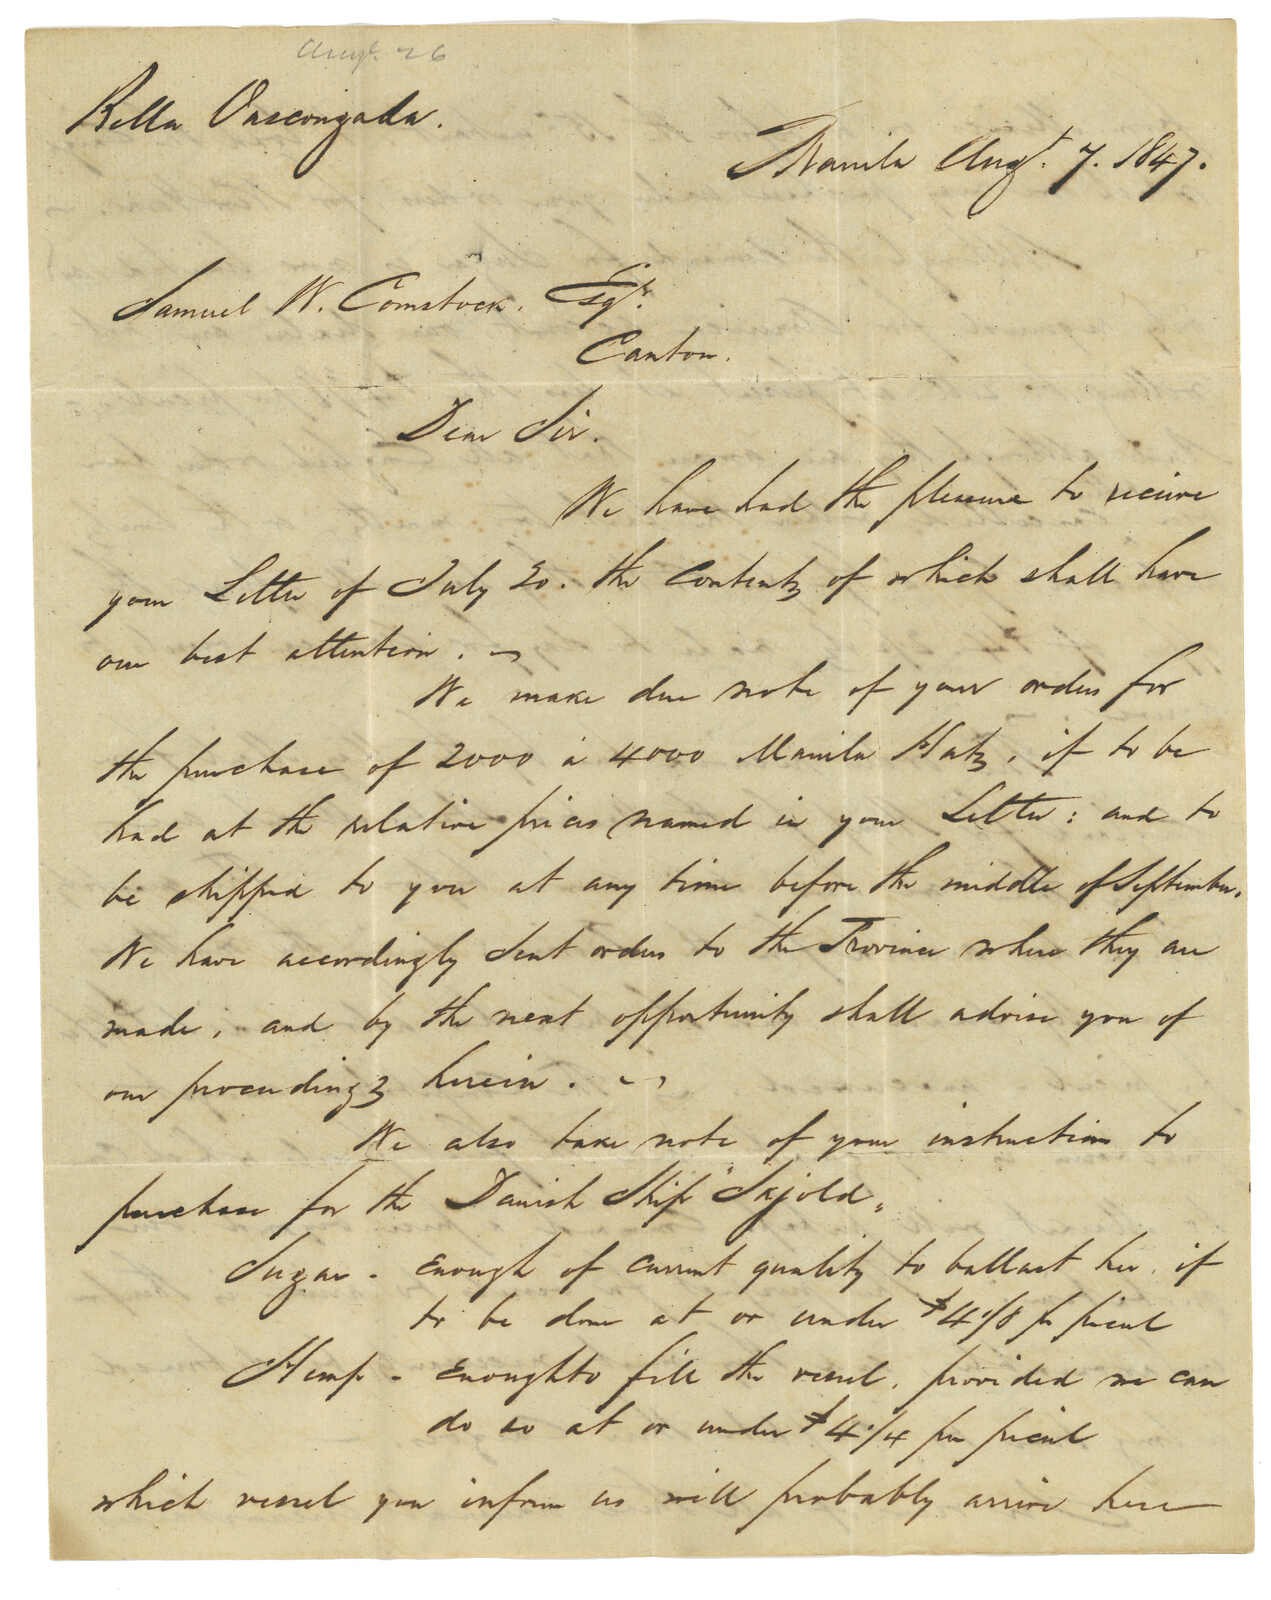 Augt. 26
Bella Vascongada.
Manila Augt. 7. 1847.
Samuel W. Comstock. Esqr.
Canton.
Dear Sir.
We have had the pleasure to receive
your Letter of July 20. the contents of which shall have
our best attention.
We make due note of your orders for
the purchase of 2000 a 4000 Manila Hats, if to be
had at the relative prices named in your Letter: and to
be shipped to you at any time before the middle of September.
We have accordingly sent orders to the Province where they are
made, and by the next opportunity shall advise you of
our proceedings herein.
We also take note of your instructions to
purchase for the Danish Ship "Skjold"
Sugar - enough of current quality to ballast her, if
to be done at or under $4 1/8 pr picul
Hemp - enough to fill the vessel, provided we can
do so at or under $4 1/4 per picul
which vessel you inform us will probably arrive here